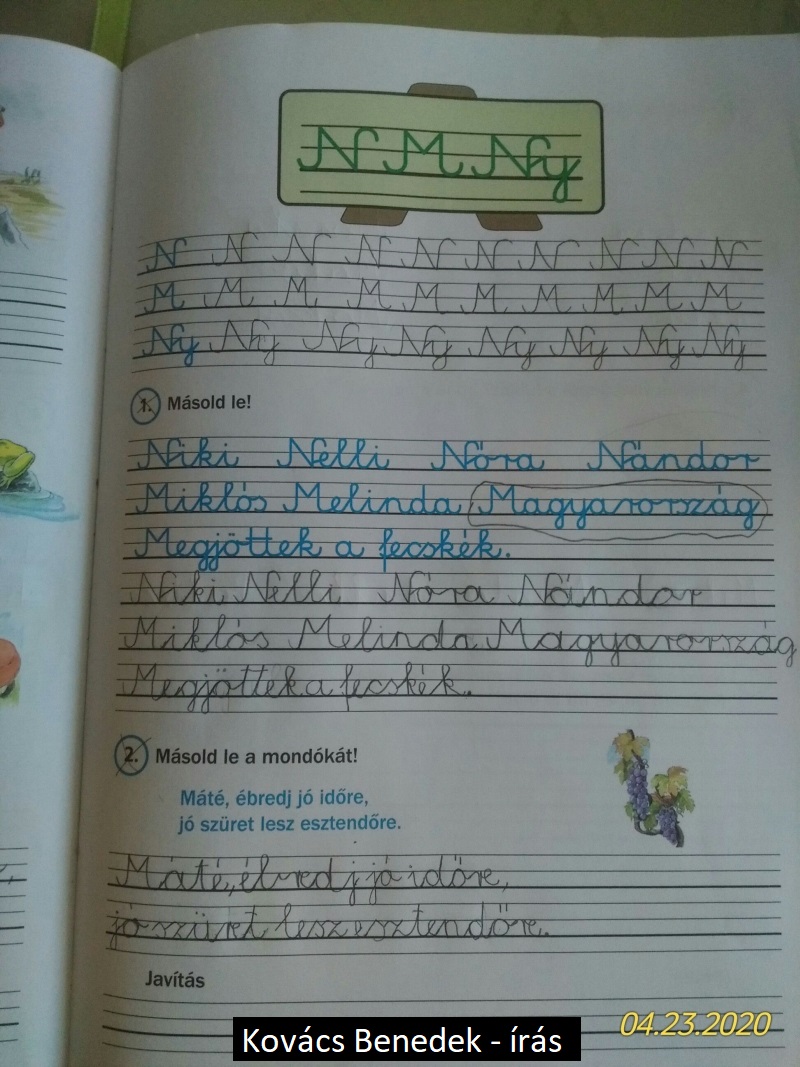 N M Ny
N N N N N N N N N N
M M M M M M M M M M
Ny Ny Ny Ny Ny Ny Ny Ny
1. Másold le!
Niki Nelli Nóra Nándor
Miklós Melinda Magyarország
Megjöttek a fecskék.
Niki Nelli Nóra Nándor
Miklós Melinda Magyarország
Megjöttek a fecskék.
2. Másold le a mondókát!
Máté, ébredj jó időre,
jó szüret lesz esztendőre.
Máté, ébredj jó időre,
jó szüret lesz esztendőre.
Javítás
04.23.2020
Kovács Benedek - írás